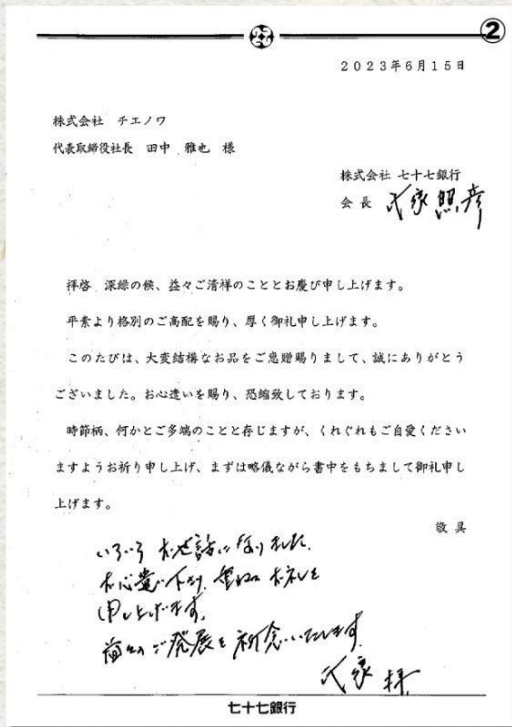 ②
2023年6月15日
株式会社 チエノワ
代表取締役社長 田中 雅也 様
株式会社 七十七銀行
会長 氏家照彦
拝啓 深緑の候、益々ご清祥のこととお慶び申し上げます。
平素より格別のご高配を賜り、厚く御礼申し上げます。
このたびは、大変結構なお品をご恵贈賜りまして、誠にありがとう
ございました。お心遣いを賜り、恐縮致しております。
時節柄、何かとご多端のことと存じますが、くれぐれもご自愛ください
ますようお祈り申し上げ、まずは略儀ながら書中をもちまして御礼申し
上げます。
敬具
いろいろお世話になりました。
お心遣い下さり、重ねてお礼を
申し上げます。
益々のご発展を祈念いたします。
氏家 拝
七十七銀行